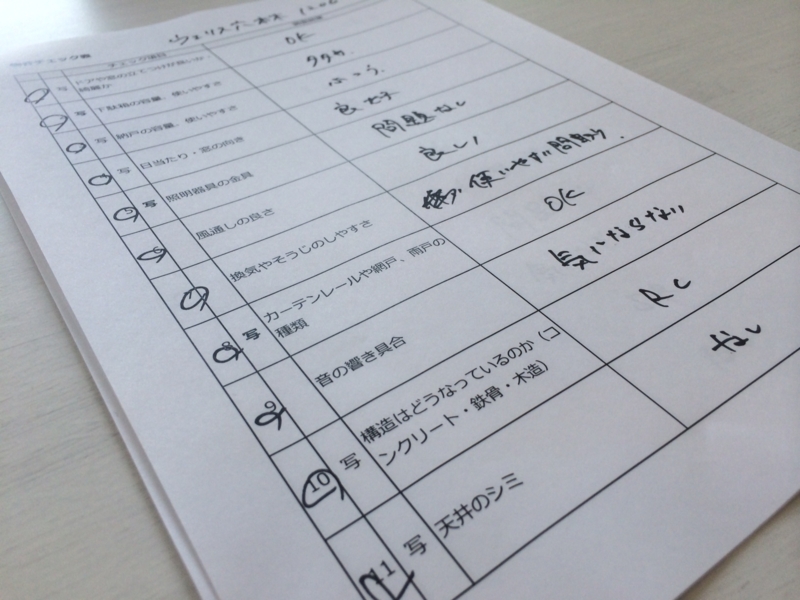 チェック項目
1 写 ドアや窓の立てつけが良いか、
綺麗か
OK
2 写 下駄箱の容量、使いやすさ
3 写 納戸の容量、使いやすさ
ふつう
4 写 日当たり・窓の向き
良好
5 写 照明器具の金具
問題なし
6 風通しの良さ
良い
7 換気やそうじのしやすさ
使いやすい 問題ない
8 写 カーテンレールや網戸、雨戸の
種類
OK
9 音の響き具合
気にならない
10 写 構造はどうなっているのか(コ
ンクリート・鉄骨・木造)
RC
11 写 天井のシミ
なし